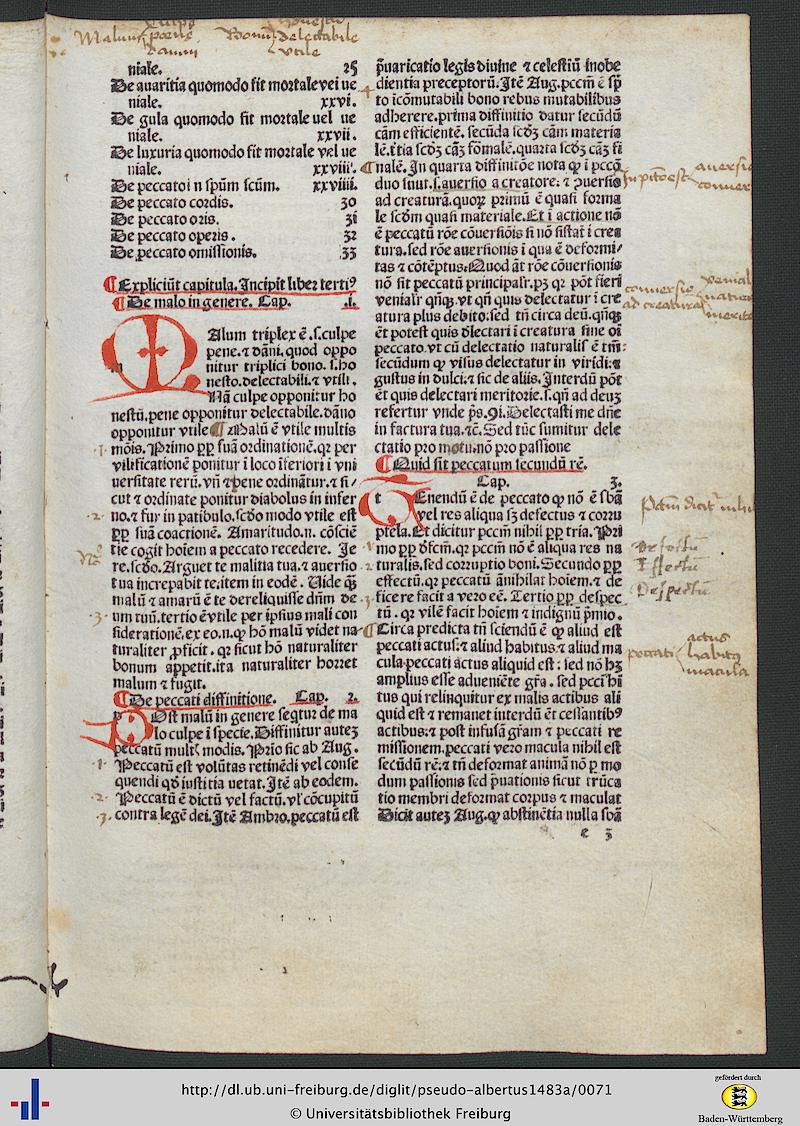 niale. 25
De auaritia quomodo fit mortale vel ue
niale. xxvi.
De gula quomodo fit mortale uel ue
niale. xxvii.
De luxuria quomodo fit mortale vel ue
niale. xxviii.
De peccato i n spūm scūm. xxviiii.
De peccato cordis. 30
De peccato oris. 31
De peccato operis. 32
De peccato omissionis. 33
¶Expliciūt capitula. Incipit liber tertiꝰ
¶De malo in genere. Cap. .i.
MAlum triplex ē .s. culpe
pene. ⁊ dāni. quod oppo
nitur triplici bono. s. ho
nesto. delectabili. ⁊ vtili.
Nā culpe opponitur ho
nestū. pene opponitur delectabile. dāno
opponitur vtile ¶Malū ē vtile multis
mōis. Primo ꝓꝑ suā ordinationē. qꝛ per
vilificationē ponitur i loco iferiori i vni
uersitate rerū. vn̄ ⁊ pene ordinātur. ⁊ si/
cut ⁊ ordinate ponitur diabolus in infer
no. ⁊ fur in patibulo. scd̄o modo vtile est
ꝓꝑ suā coactionē. Amaritudo. n. cōsciē
tie cogit hoīem a peccato recedere. Je
re. scd̄o. Arguet te malitia tua. ⁊ auersio
tua increpabit te. item in eodē. Uide qꝫ
malū ⁊ amarū ē te dereliquisse dn̄m de
um tuū. tertio ēvtile per ipsius mali con
siderationē. ex eo. n. ꝙ hō malū videt na
turaliter ꝓficit. qꝛ sicut hō naturaliter
bonum appetit. ita naturaliter horret
malum ⁊ fugit.
¶De peccati diffinitione. Cap. 2.
POst malū in genere seqtur de ma
lo culpe i specie. Diffinitur autez
peccatū mult modis. Prīo sic ab Aug.
Peccatū est volūtas retinēdi vel conse
quendi qd̄ iustitia uetat. Itē ab eodem.
Peccatū ē dictū vel factū. vl cōcupitū
contra legē dei. Itē Ambro. peccatū est
p̄uaricatio legis diuine ⁊ celestiū inobe
dientia preceptorū. Itē Aug. pccm̄ ē sp̄
to icōmutabili bono rebus mutabilibus
adherere. prima diffinitio datur secūdū
cām efficientē. secūda scdꝫ cām materia
lē. t̄tia scdꝫ cāꝫ fōmalē. quarta scdꝫ cāꝫ fi
¶nalē. In quarta diffinitōe nota ꝙ i pccō
duo sunt .s. auersio a creatore: ⁊ ꝯuersio
ad creaturā. quoꝝ primū ē quasi forma
le scd̄m quasi materiale. Et i actione nō
ē peccatū rōe cōuersiōis si nō sistat i crea
tura. sed rōe auersionis i qua ē deformi/
tas ⁊ cōtēptus. Quod āt rōe cōuersionis
nō sit peccatū principalr. pꝫ qꝛ pōt fieri
venialr qn̄qꝫ. vt qn̄ quis delectatur i cre
atura plus debito. sed tn̄ circa deū. qn̄qꝫ
ēt potest quis dlectari i creatura sine oī
peccato. vt cū delectatio naturalis ē tm̄:
secūdum ꝙ visus delectatur in viridi: ⁊
gustus in dulci: ⁊ sic de aliis. Interdū pōt
ēt quis delectari meritorie. s. qn̄ ad deuꝫ
refertur vnde p̄s. 9i. Delectasti me dn̄e
in factura tua. ⁊c̄. Sed tūc sumitur dele
ctatio pro motu. nō pro passione
¶Quid sit peccatum secundū rē.
Cap. 3.
TEnendū ē de peccato ꝙ nō ē sbā
vel res aliqua sꝫ defectus ⁊ corru
ptela. Et dicitur pccm̄ nihil ꝓꝑ tria. Pri
mo ꝓꝑ dfc̄m. qꝛ pccm̄ nō ē aliqua res na
turalis. sed corruptio boni. Secundo ꝓꝑ
effectū. qꝛ peccatū ānihilat hoīem. ⁊ de
ficere facit a vero eē. Tertio ꝓꝑ despec
tū. qꝛ vilē facit hoīem ⁊ indignū p̄mio.
¶Circa predicta tn̄ sciendū ē ꝙ aliud est
peccati actus: ⁊ aliud habitus: ⁊ aliud ma
cula. peccati actus aliquid est: sed nō hꝫ
amplius esse adueniēte gr̄a. sed pcci hi
tus qui relinquitur ex malis actibus ali
quid est ⁊ remanet interdū ēt cessantibꝰ
actibus: ⁊ post infusā gr̄am ⁊ peccati re
missionem. peccati vero macula nihil est
secūdū rē: ⁊ tn̄ deformat animā nō ꝑ mo
dum passionis sed p̄uationis sicut trūca
tio membri deformat corpus ⁊ maculat
Dicit auteꝫ Aug. ꝙ abstinētia nulla sbā
e 3
Malum pene
Bonum delectabile
vtile
auersio
conuersio
Defectū
Effectū
Despectū
peccati
actus
habitꝰ
macula
http://dl.ub.uni-freiburg.de/diglit/pseudo-albertus1483a/0071
© Universitätsbibliothek Freiburg
gefördert durch
Baden-Württemberg